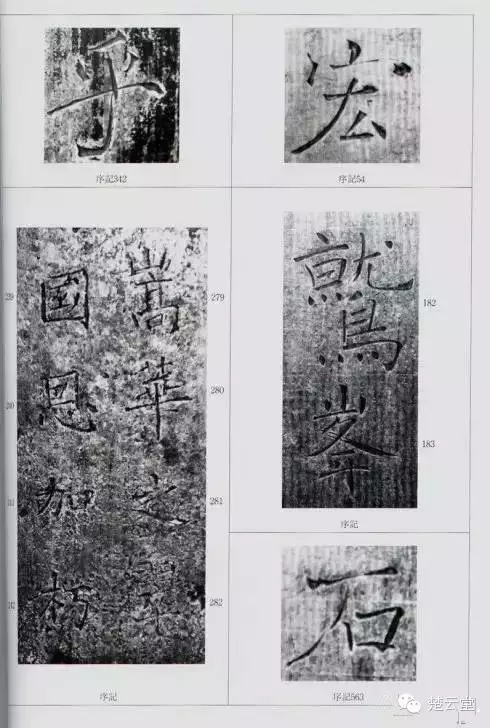 宏
序記54
乎
序記342
鷲
182
峯
183
序記
嵩
279
華
280
之
281
282
國
恩
加
朽
序記
石
序記563
楚云堂